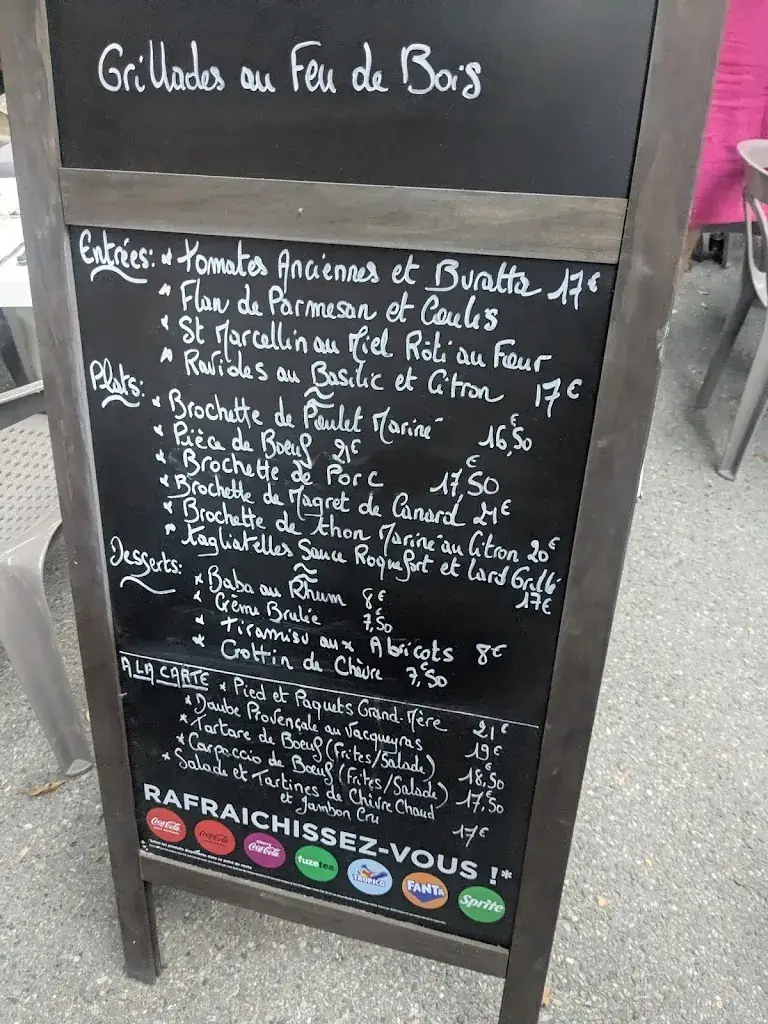 Grillades au Feu de Bois
Entrées: * Tomates Anciennes et Buratta 17€
* Flan de Parmesan et Coulis
* St Marcellin au Miel Rôti au Four
* Ravioles au Basilic et Citron 17€
~
Plats: * Brochette de Poulet Mariné 16,50€
* Pièce de Boeuf 21€
* Brochette de Porc 17,50€
* Brochette de Magret de Canard 21€
* Brochette de thon Mariné au Citron 20€
* Tagliatelles Sauce Roquefort et Lard Grillé
17€
~
Desserts: * Baba au Rhum 8€
* Crème Brulée 7,50€
* Tiramisu aux Abricots 8€
* Crottin de Chèvre 7,50€
A LA CARTE * Pied et Paquets Grand-Mère 21€
* Daube Provençale au Vacqueyras 19€
* Tartare de Boeuf (Frites/Salade) 18,50€
* Carpaccio de Boeuf (Frites/Salade) 17,50€
* Salade et Tartines de Chèvre Chaud
et Jambon Cru 17€
RAFRAICHISSEZ-VOUS !*
Coca-Cola Coca-Cola Coca-Cola fuzetea TROPICO FANTA Sprite